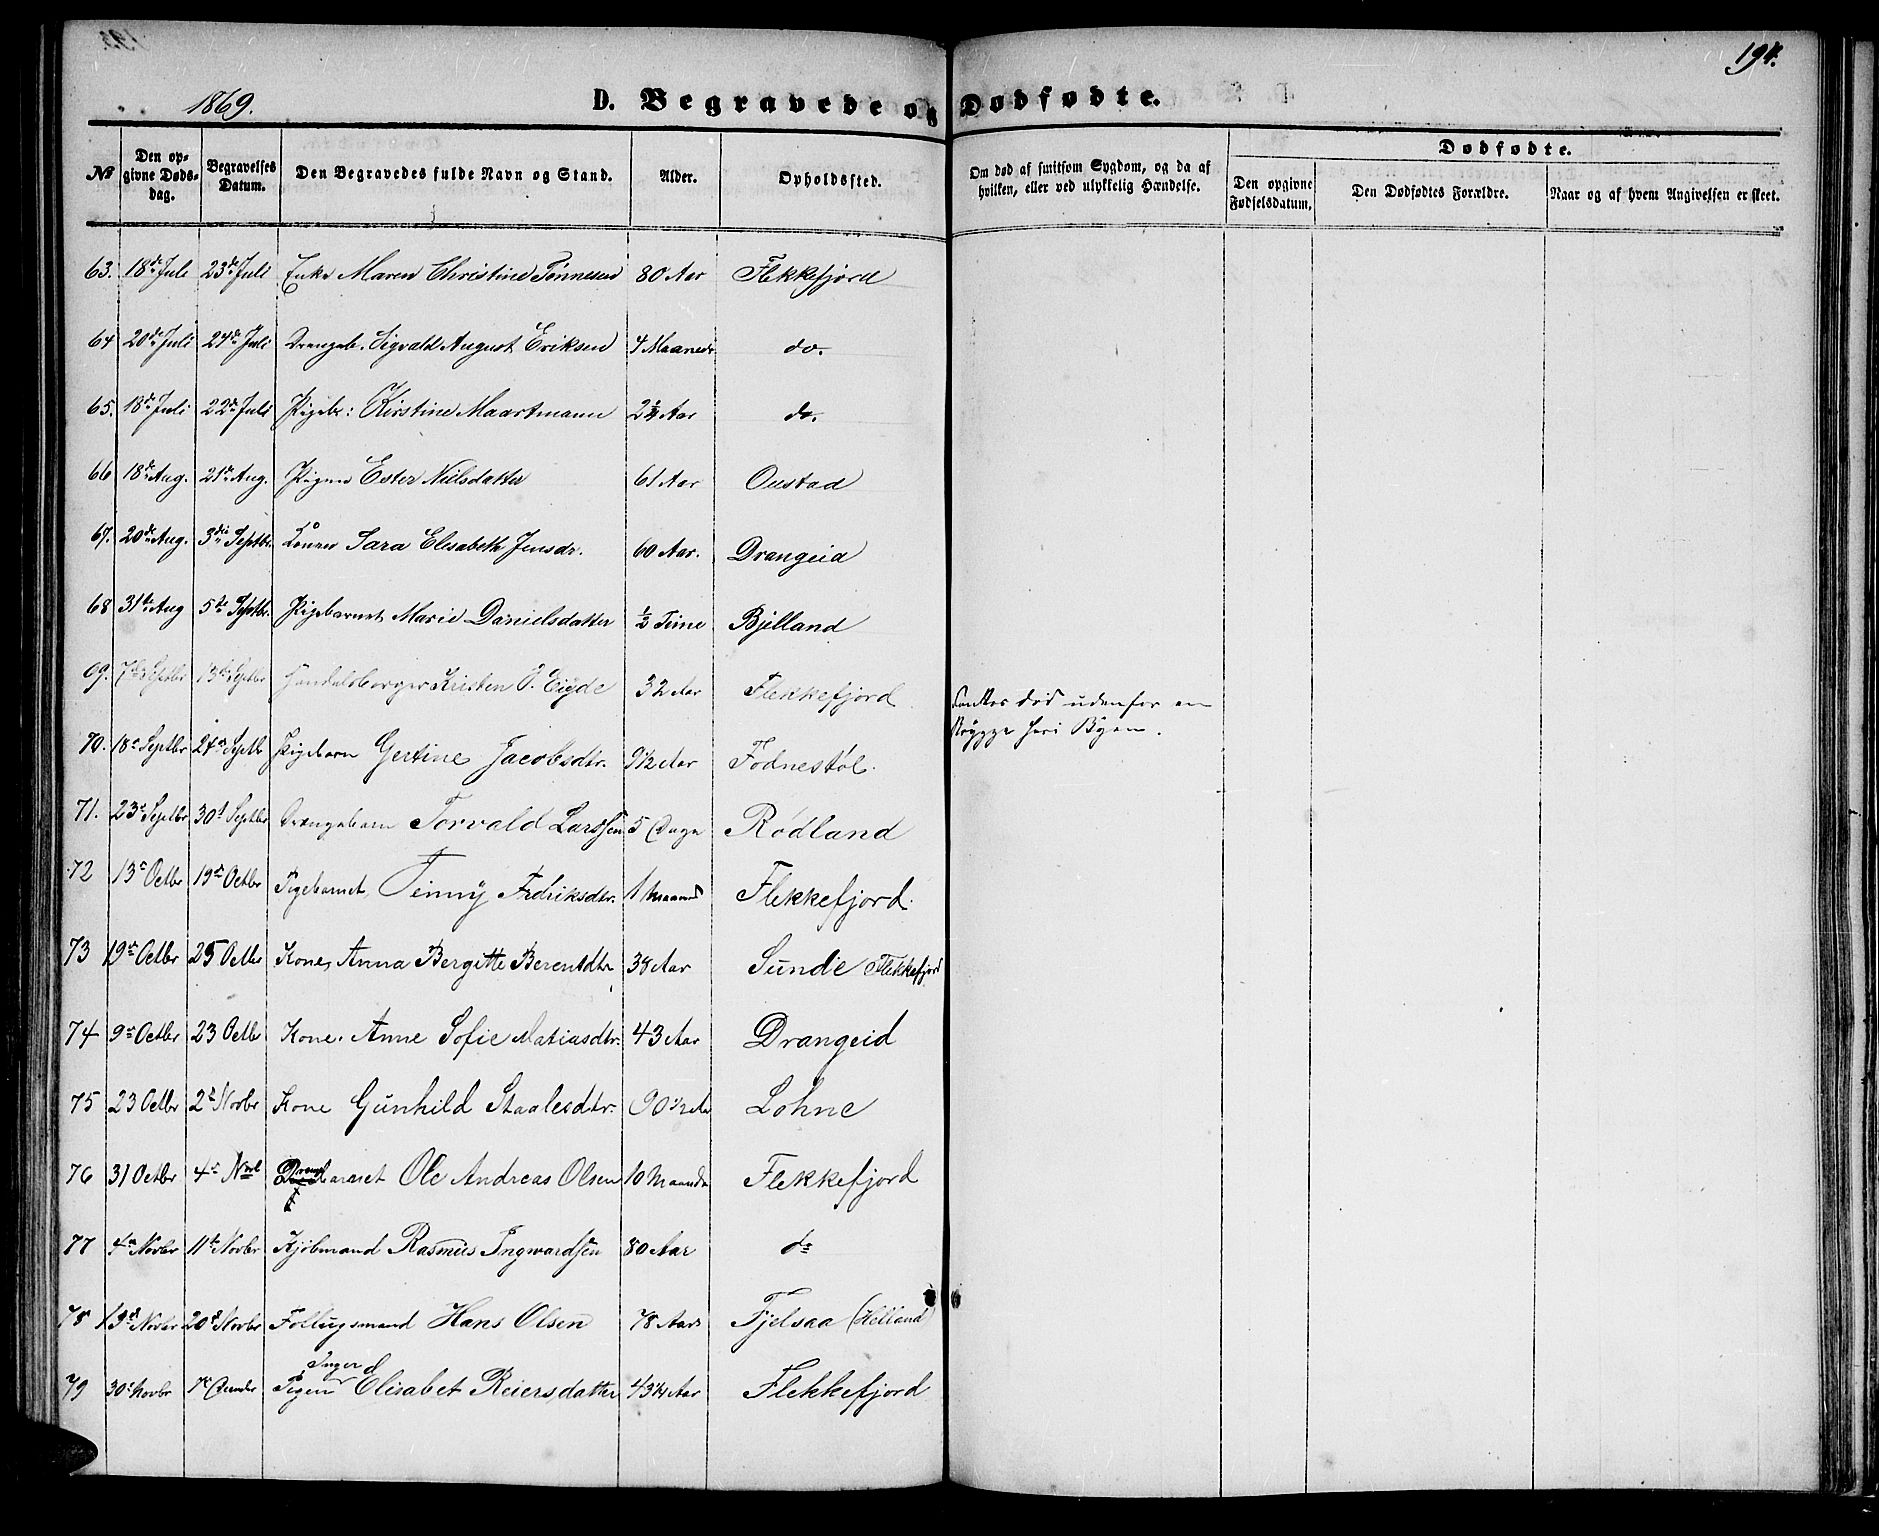 194.
1869.
D. Begravede og Dødfødte.
No
Den opgivne Dødsdag.
Begravelses Datum.
Den Begravedes fulde Navn og Stand.
Alder.
Opholdssted.
Om død af smitsom Sygdom, og da af hvilken, eller ved ulykkelig Hændelse.
Dødfødte.
Den opgivne Fødselsdatum.
Den Dødfødtes Forældre.
Naar og af hvem Angivelsen er skeet.
63. 18de Juli 23de Juli Enke Maren Christine Tönnesen 80 Aar Flekkefjord
64 20de Juli 24de Juli Drengeb. Sigvald August Eriksen 4 Maaneder do.
65. 18de Juli 22de Juli Pigeb: Kirstine Maartmann 2¼ Aar do.
66 18de Aug. 21de Aug. Pigen Ester Nielsdatter 61 Aar Oustad
67. 20de Aug. 3die Septbr. Konen Sara Elisabeth Jensdr. 60 Aar. Drangeid
68 31te Aug 5te Septbr. Pigebarnet Marie Danielsdatter ½ Time Bjelland
69. 7de Septbr 13de Septbr Handelsborger Kristen O. Eigde 32 Aar Flekkefjord
Fandtes död udenfor en Brygge her i Byen.
70. 18de Septbr 24de Septbr Pigebarn Gertine Jacobsdtr. 9½ Aar Fodnestøl.
71. 23de Septbr 30t Septbr Drengebarn Torvald Larssen 5 Dage Rødland
72 13de Octbr 19de Octbr Pigebarnet, Jenny Fedriksdtr. 1 Maaned Flekkefjord.
73 19de Octbr 25 Octbr Kone, Anna Bergitte Berentdtr 38 Aar Sunde Flekkefjord
74 9de Octbr 23 Octbr Kone. Anne Sofie Matiasdtr. 43 Aar Drangeid
75 23 Octbr 2d Novbr Kone Gunhild Staalesdtr. 90½ Aar Lohne
76 31 Octbr 4de Novb Drengebarnet Ole Andreas Olsen 10 Maaneder Flekkefjord
77 4de Novbr 11te Novbr Kjöbmand Rasmus Ingwardsen 80 Aar do
78 13de Novbr 20de Novbr Follugsmand Hans Olsen 78 Aar Fjelsaa (Helland)
79 30te Novbr 7de Decmbr Pigen Inger Elisabet Reiersdatter 43¼ Aar Flekkefjord